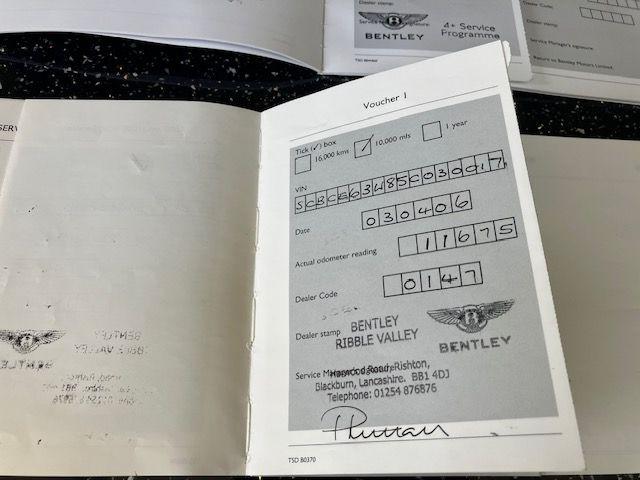 Dealer stamp:
BENTLEY
4+ Service
Programme
TSD B0460
Dealer Code:
Dealer stamp
Service Manager's signature
Return to Bentley Motors Limited.
SERV
Voucher 1
Tick (✓) box
16,000 kms
10,000 mls
1 year
VIN
Date
030406
Actual odometer reading
11675
Dealer Code
0147
Dealer stamp
BENTLEY
RIBBLE VALLEY
BENTLEY
Harwood Road, Rishton,
Blackburn, Lancashire. BB1 4DJ
Telephone: 01254 876876
TSD B0370